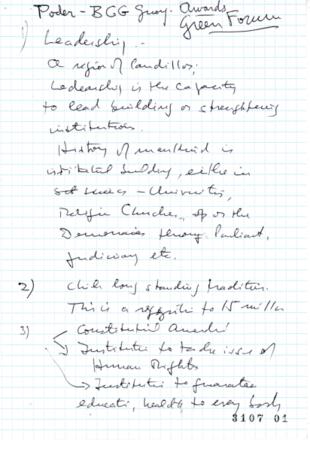 Poder - BCG Group. Awards
Green Forum
1) Leadership -
A region of Caudillos.
Leadership is the capacity
to lead building or strengthening
institutions.
History of mankind is
building, either in
- University,
Religion Churches, or the
Democracies Parliament,
Judiciary etc.
2) Chile long standing tradition.
This is a to 15 million
3) Constitutional
Institution to tackle issue of
Human Rights
Institution to guarantee
education, health to every body
3107 01